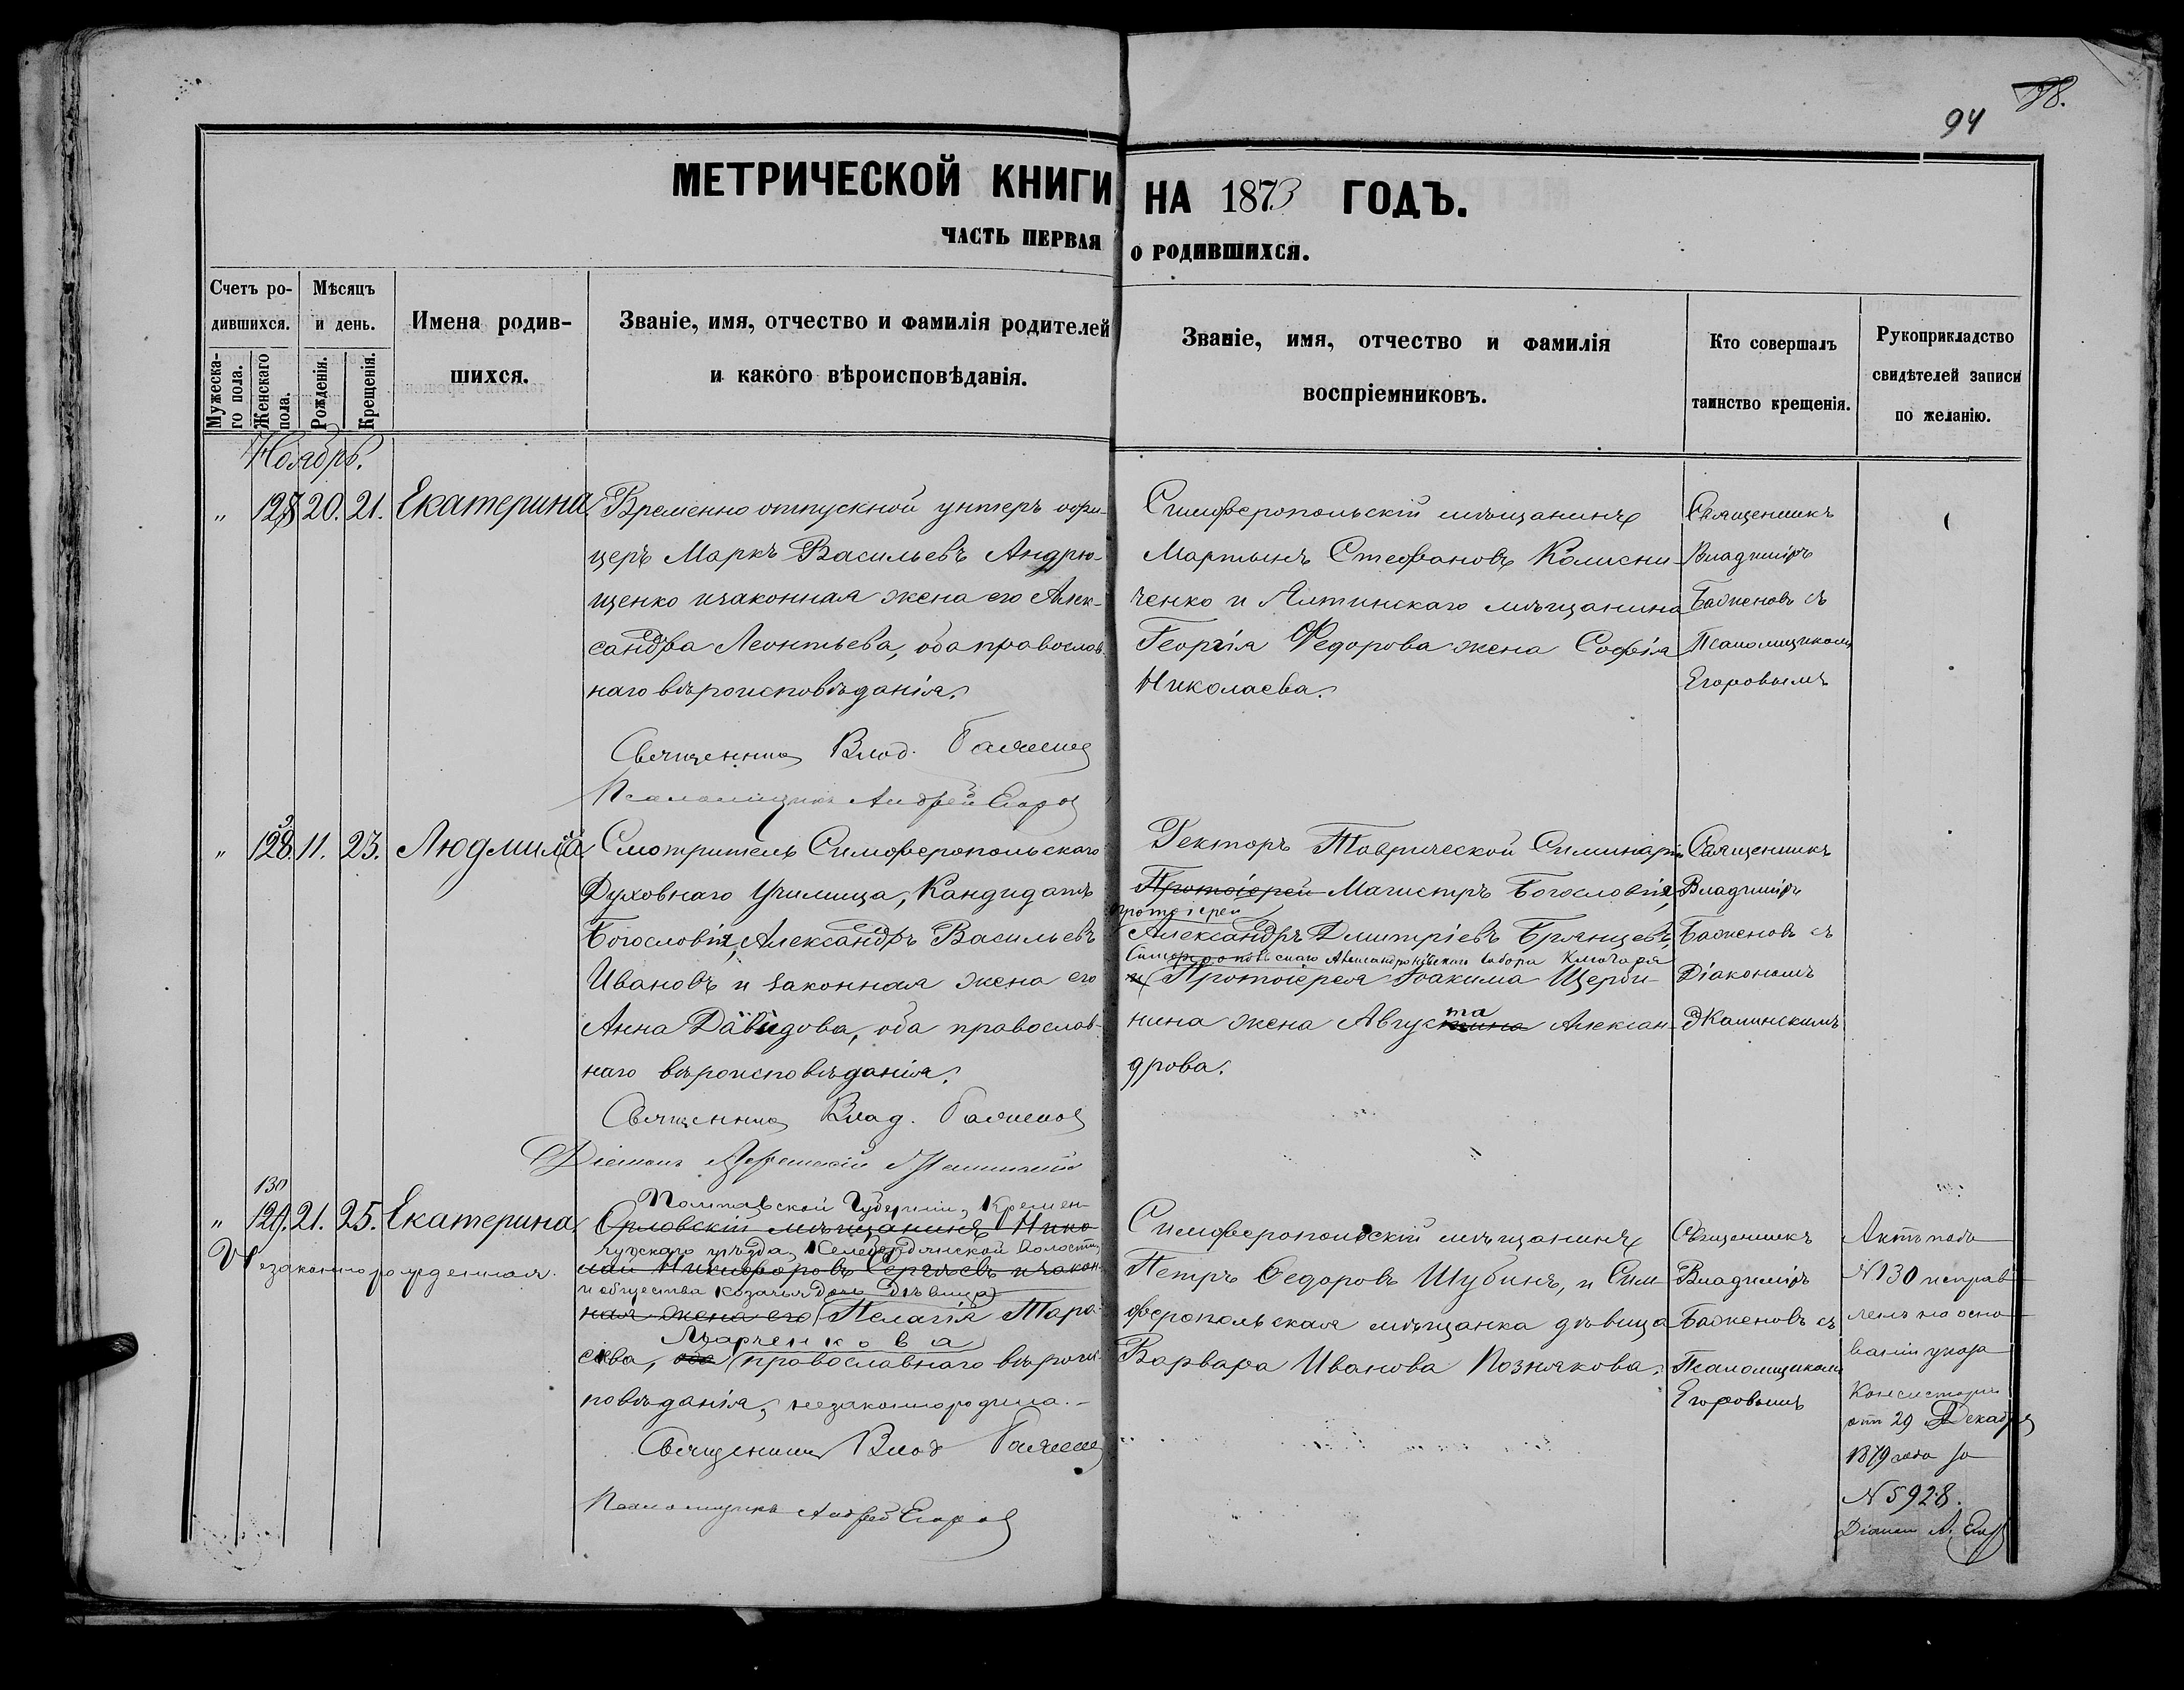 94 98.
МЕТРИЧЕСКОЙ КНИГИ НА 1873 ГОДЪ.
ЧАСТЬ ПЕРВАЯ О РОДИВШИХСЯ.
Счетъ ро-
дившихся.
Мужеска-
го пола.
Женскаго
пола.
Мѣсяцъ
и день.
Рожденія.
Крещенія.
Имена родив-
шихся.
Званіе, имя, отчество и фамилія родителей
и какого вѣроисповѣданія.
Званіе, имя, отчество и фамилія
воспріемниковъ.
Кто совершалъ
таинство крещенія.
Рукоприкладство
свидѣтелей записи
по желанію.
Ноябрь.
" 128 20. 21. Екатерина
Временно отпускной унтеръ офи-
церъ Маркъ Васильевъ Андрю-
щенко изаконная жена его Алек-
сандра Леонтьева, оба православ-
наго вѣроисповѣданія.
Священникъ Влад. Баженовъ
Псаломщикъ Андрей Егоровъ
Симферопольскій мѣщанинъ
Мартынъ Стефановъ Колисни-
ченко и Ялтинскаго мѣщанина
Георгія Ѳедорова жена Софія
Николаева.
Священникъ
Владиміръ
Баженовъ съ
Псаломщикомъ
Егоровымъ
9
" 128. 11. 23. Людмила
Смотритель Симферопольскаго
Духовнаго Училища, Кандидатъ
Богословія, Александръ Васильевъ
Ивановъ и законная жена его
Анна Давидова, оба православ-
наго вѣроисповѣданія.
Священникъ Влад. Баженовъ
Діаконъ
Ректоръ Таврической Семинаріи
Протоіерей Магистръ Богословія,
протоіерей
Александръ Дмитріевъ Брянцевъ,
Симферопольскаго Александроневскаго Собора Ключаря
и Протоіерея Іоакима Щерби-
та
нина жена Августина Алексан-
дрова.
Священникъ
Владиміръ
Баженовъ съ
Діакономъ
Жалинскимъ
130
" 129. 21. 25. Екатерина
Незаконнорожденная.
Полтавской Губерніи, Кремен-
Орловскій мѣщанинъ Нико-
чугскаго уѣзда, Келебердянской Волости
лай Никифоровъ Сергѣевъ изакон-
и общества козачья дочь Дѣвица
ная жена его Пелагія Тара-
Марченкова
сова, оба православнаго вѣроис-
повѣданія, незаконнородила.
Священникъ Влад Баженовъ
Псаломщикъ Андрей Егоровъ
Симферопольскій мѣщанинъ
Петръ Ѳедоровъ Шубинъ, и Сим-
феропольская мѣщанка дѣвица
Варвара Иванова Познякова.
Священникъ
Владиміръ
Баженовъ съ
Псаломщикомъ
Егоровымъ
Актъ подъ
№ 130 исправ-
ленъ на осно-
ваніи указа
Консисторіи
отъ 29 Декабря
1879 года за
№ 5928.
Діаконъ А. Егоровъ